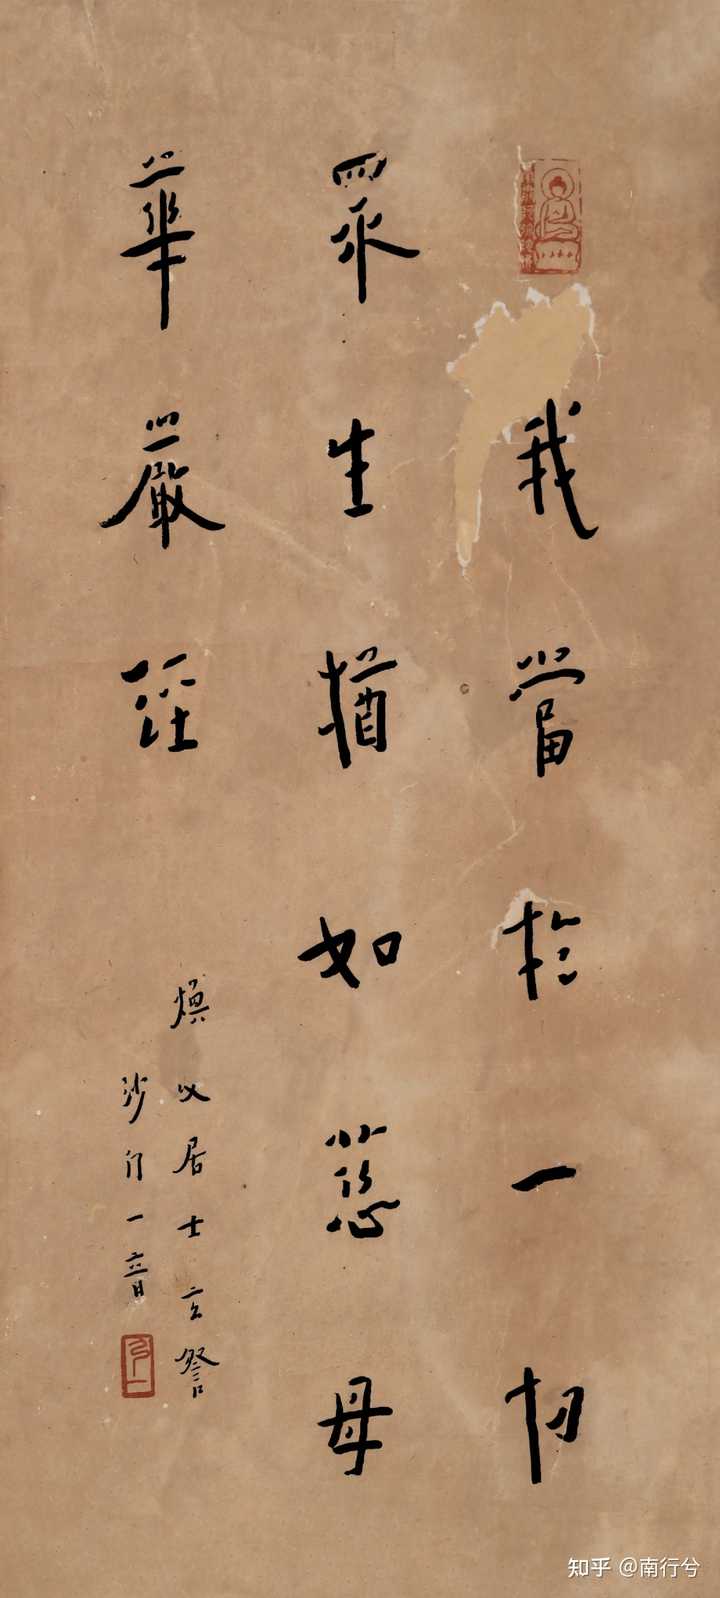 我當於一切
衆生猶如慈母
華嚴經
煥文居士玄詧
沙門一音
知乎 @南行兮